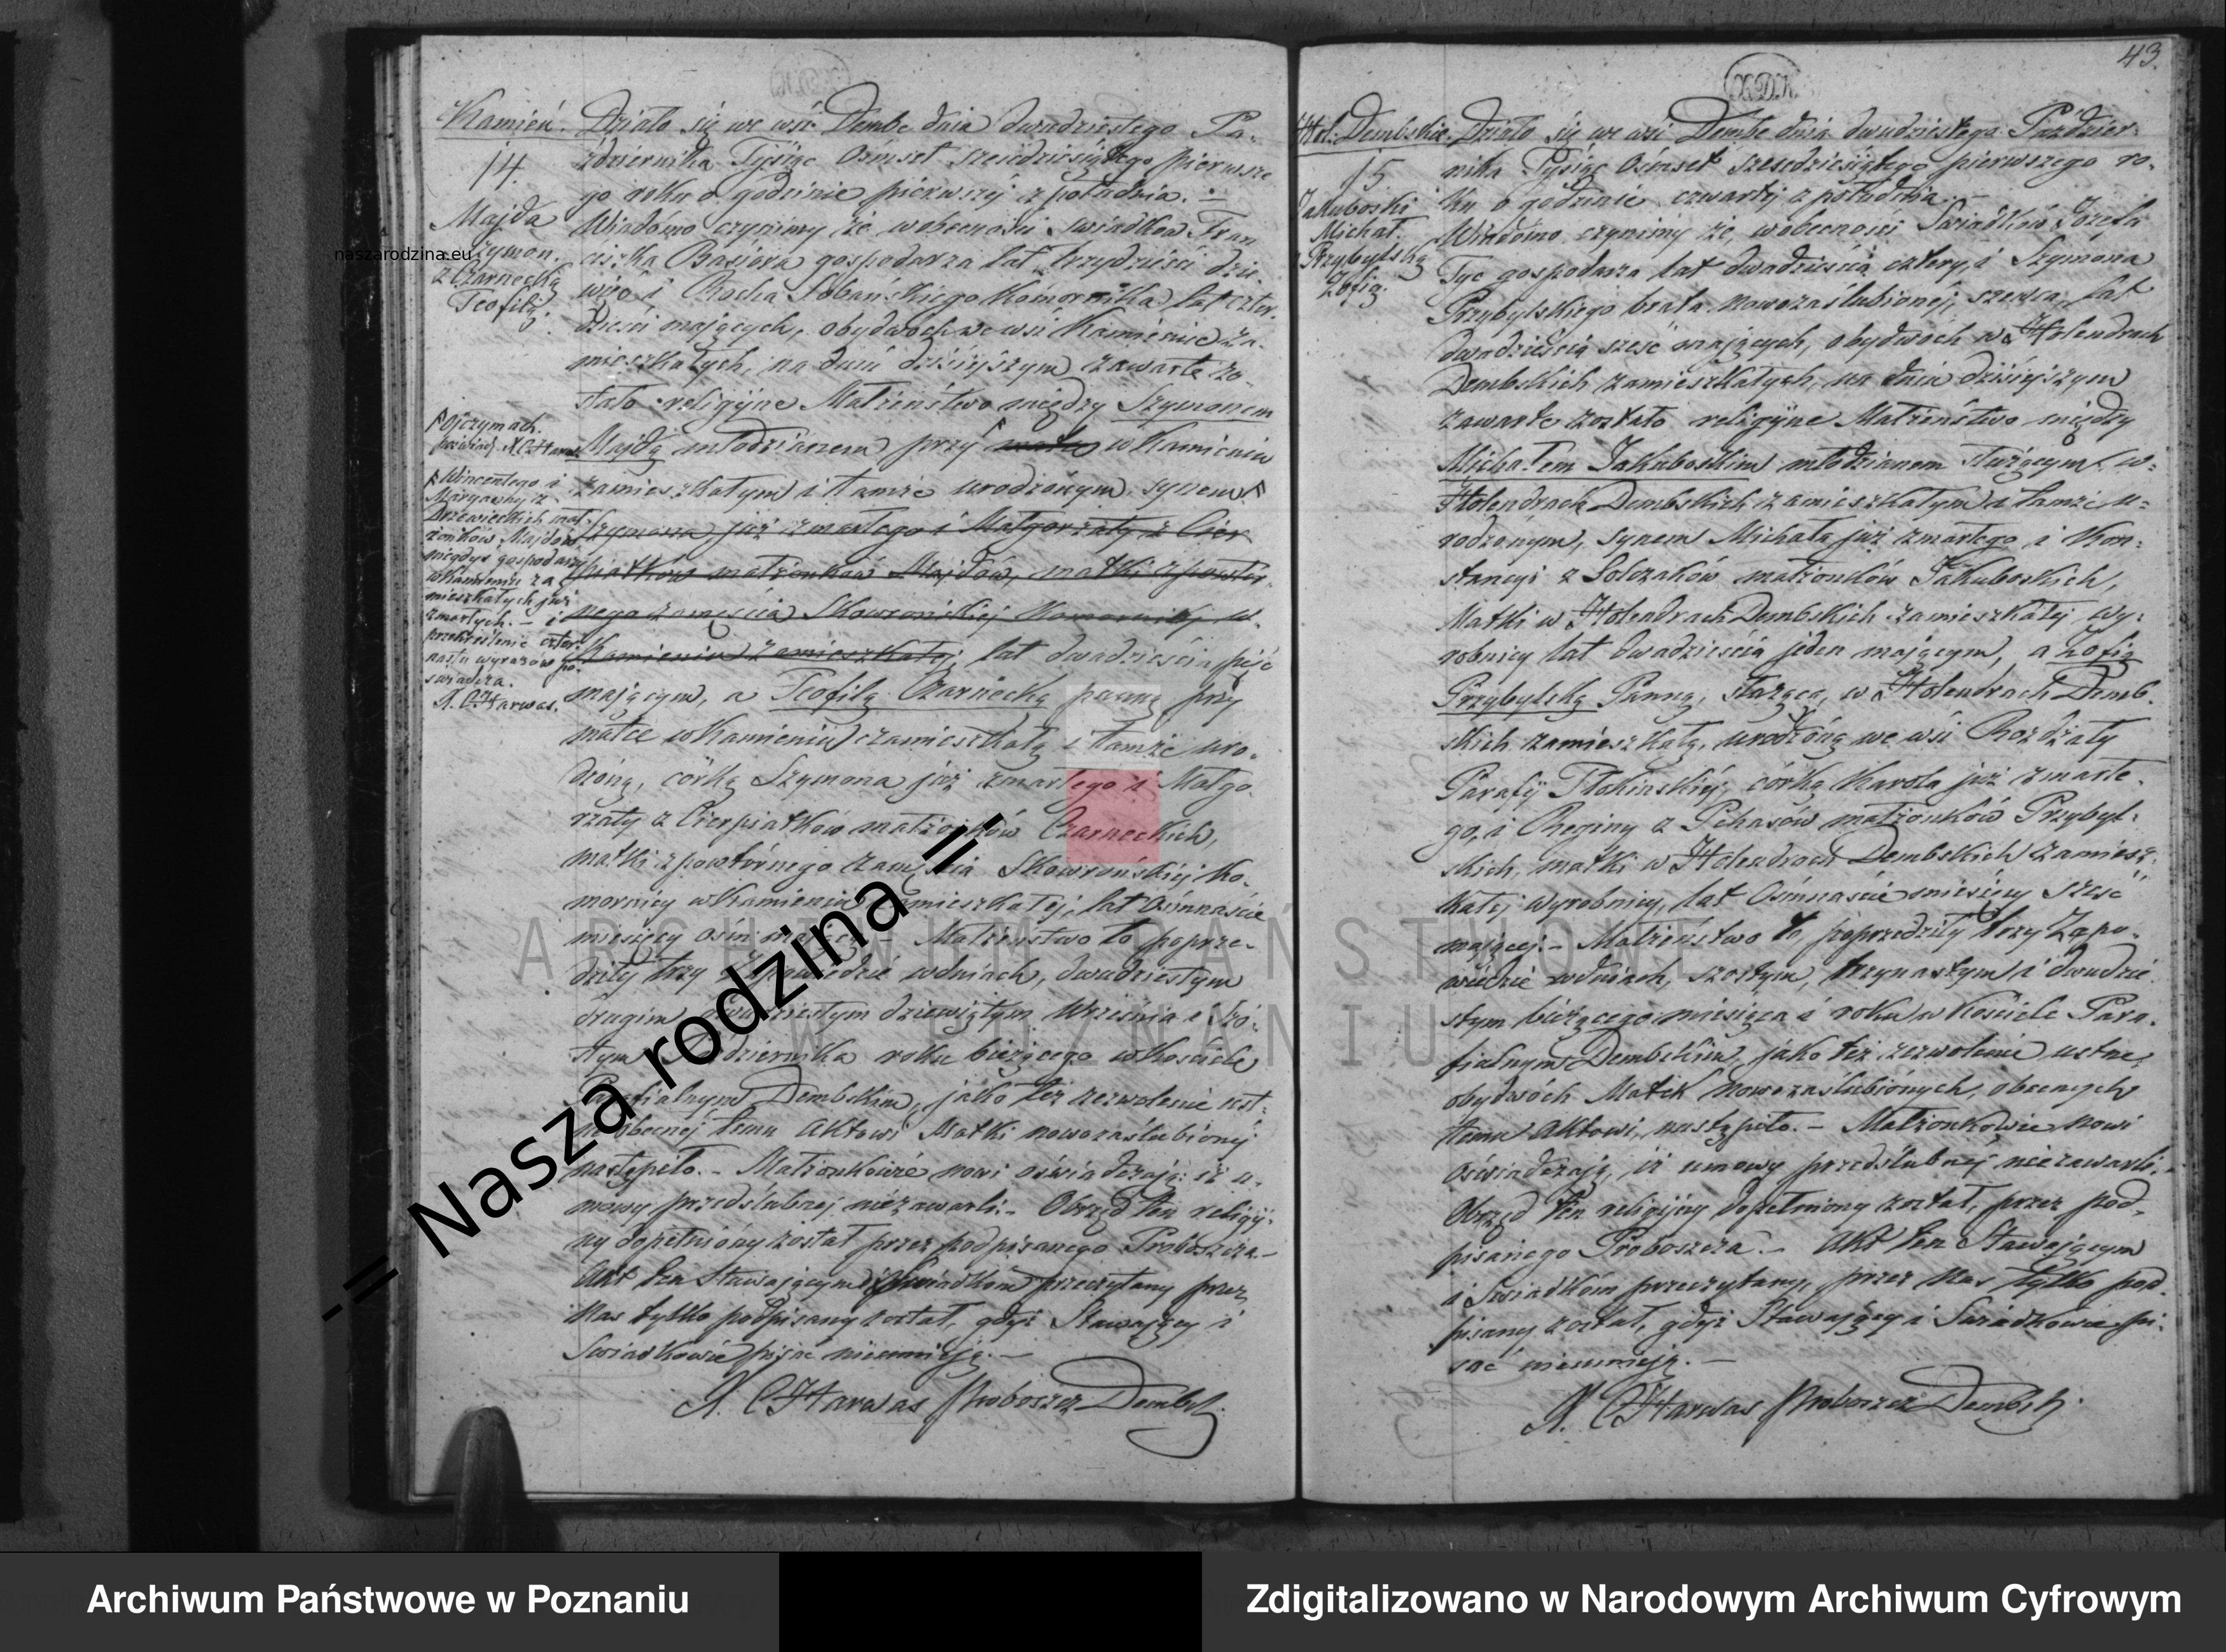 43.
Kamień.
14.
Majda
Szymon.
z Czarnecką
Teofilą.
Działo się we wsi Dembe dnia dwudziestego Pa-
ździernika Tysiąc Ośmset sześdziesiątego pierwsze
go roku o godzinie pierwszej z południa. —
Wiadomo czynimy że w obecności świadków Fran
ciszka Basiora gospodarza lat trzydzieści dzie-
więć i Rocha Sobańskiego Komornika lat czter-
dzieści mających, obydwoch we wsi Kamieniu za-
mieszkałych, na dniu dzisiejszym zawarte zo-
stało religijne Małżeństwo między Szymonem
Majdą młodzianem przy w Kamieniu
zamieszkałym i tamże urodzonym, synem
Szymona już zmarłego i Małgorzaty z Cier
piatków małżonków Majdów, matki z powtór-
nego zamęścia Skowrońskiej Komornicy w
Kamieniu zamieszkałej, lat dwadzieścia pięć
mającym, a Teofilą Czarnecką panną przy
matce w Kamieniu zamieszkałą i tamże uro-
dzoną, córką Szymona już zmarłego i Małgo-
rzaty z Cierpiatków małżonków Czarneckich,
matki z powtórnego zamęścia Skowrońskiej Ko-
mornicy w Kamieniu zamieszkałej, lat Ośmnaście
miesięcy ośm mającą. — Małżeństwo to poprze-
dziły trzy Zapowiedzie w dniach, dwudziestym
drugim, dwudziestym dziewiątym Września i Szó-
stym Października roku bieżącego w Kościele
Parafialnym Dembskim, jako też zezwolenie ust-
ne obecnej temu Aktowi Matki nowozaślubionej
nastąpiło. — Małżonkowie nowi oświadczają: iż u-
mowy przedślubnej niezawarli. — Obrzęd ten religij-
ny dopełniony został przez podpisanego Proboszcza. —
Akt ten Stawającym i Świadkom przeczytany przez
Nas tylko podpisany został, gdyż Stawający i
Świadkowie pisać nieumieją. —
X. C Harwas Proboszcz Dembski.
Ojczymach.
poświad. X C Harwas
Wincentego i
Maryanny z
Drzewieckich mał-
żonków Majdów
niegdyś gospodarzy
w Kamieniu za-
mieszkałych już
zmarłych. — i
przekreślenie czter-
nastu wyrazów po-
świadcza.
X. C Harwas.
Hol: Dembskie.
15
Jakuboski
Michał.
z Przybylską
Zofią.
Działo się we wsi Dembe dnia dwudziestego Paździer-
nika Tysiąc Ośmset sześdziesiątego pierwszego ro-
ku o godzinie czwartej z południa. —
Wiadomo czynimy że, w obecności Świadków Józefa
Tyc gospodarza lat dwadzieścia cztery, i Szymona
Przybylskiego brata nowozaślubionej, szewca, lat
dwadzieścia sześć mających, obydwoch w Holendrach
Dembskich zamieszkałych, na dniu dzisiejszym
zawarte zostało religijne Małżeństwo między
Michałem Jakuboskim młodzianem służącym w-
Holendrach Dembskich zamieszkałym i tamże u-
rodzonym, synem Michała już zmarłego i Kon-
stancyi z Solczaków małżonków Jakuboskich,
Matki w Holendrach Dembskich zamieszkałej wy-
robnicy lat dwadzieścia jeden mającym, a Zofią
Przybylską Panną, służącą, w Holendrach Demb-
skich zamieszkałą, urodzoną we wsi Rozdzały
Parafii Tłokińskiej, córką Karola już zmarłe-
go, i Reginy z Pchasów małżonków Przybyl-
skich, matki w Holendrach Dembskich zamiesz-
kałej wyrobnicy, lat Ośmnaście miesięcy sześć
mającej. — Małżeństwo to, poprzedziły trzy Zapo-
wiedzie w dniach, szóstym, trzynastym i dwudzie-
stym bieżącego miesiąca i roku w Kościele Para-
fialnym Dembskim, jako też zezwolenie ustne
obydwóch Matek nowozaślubionych, obecnych
temu Aktowi, nastąpiło. — Małżonkowie nowi
oświadczają, iż umowy przedślubnej niezawarli. —
Obrzęd ten religijny dopełniony został, przez pod-
pisanego Proboszcza. — Akt ten Stawającym
i Świadkom przeczytany, przez Nas tylko pod-
pisany został, gdyż Stawający i Świadkowie pi-
sać nieumieją. —
X. C Harwas Proboszcz Dembski.
naszarodzina.eu
-= Nasza rodzina =-
ARCHIWUM PAŃSTWOWE
W POZNANIU
Archiwum Państwowe w Poznaniu
Zdigitalizowano w Narodowym Archiwum Cyfrowym